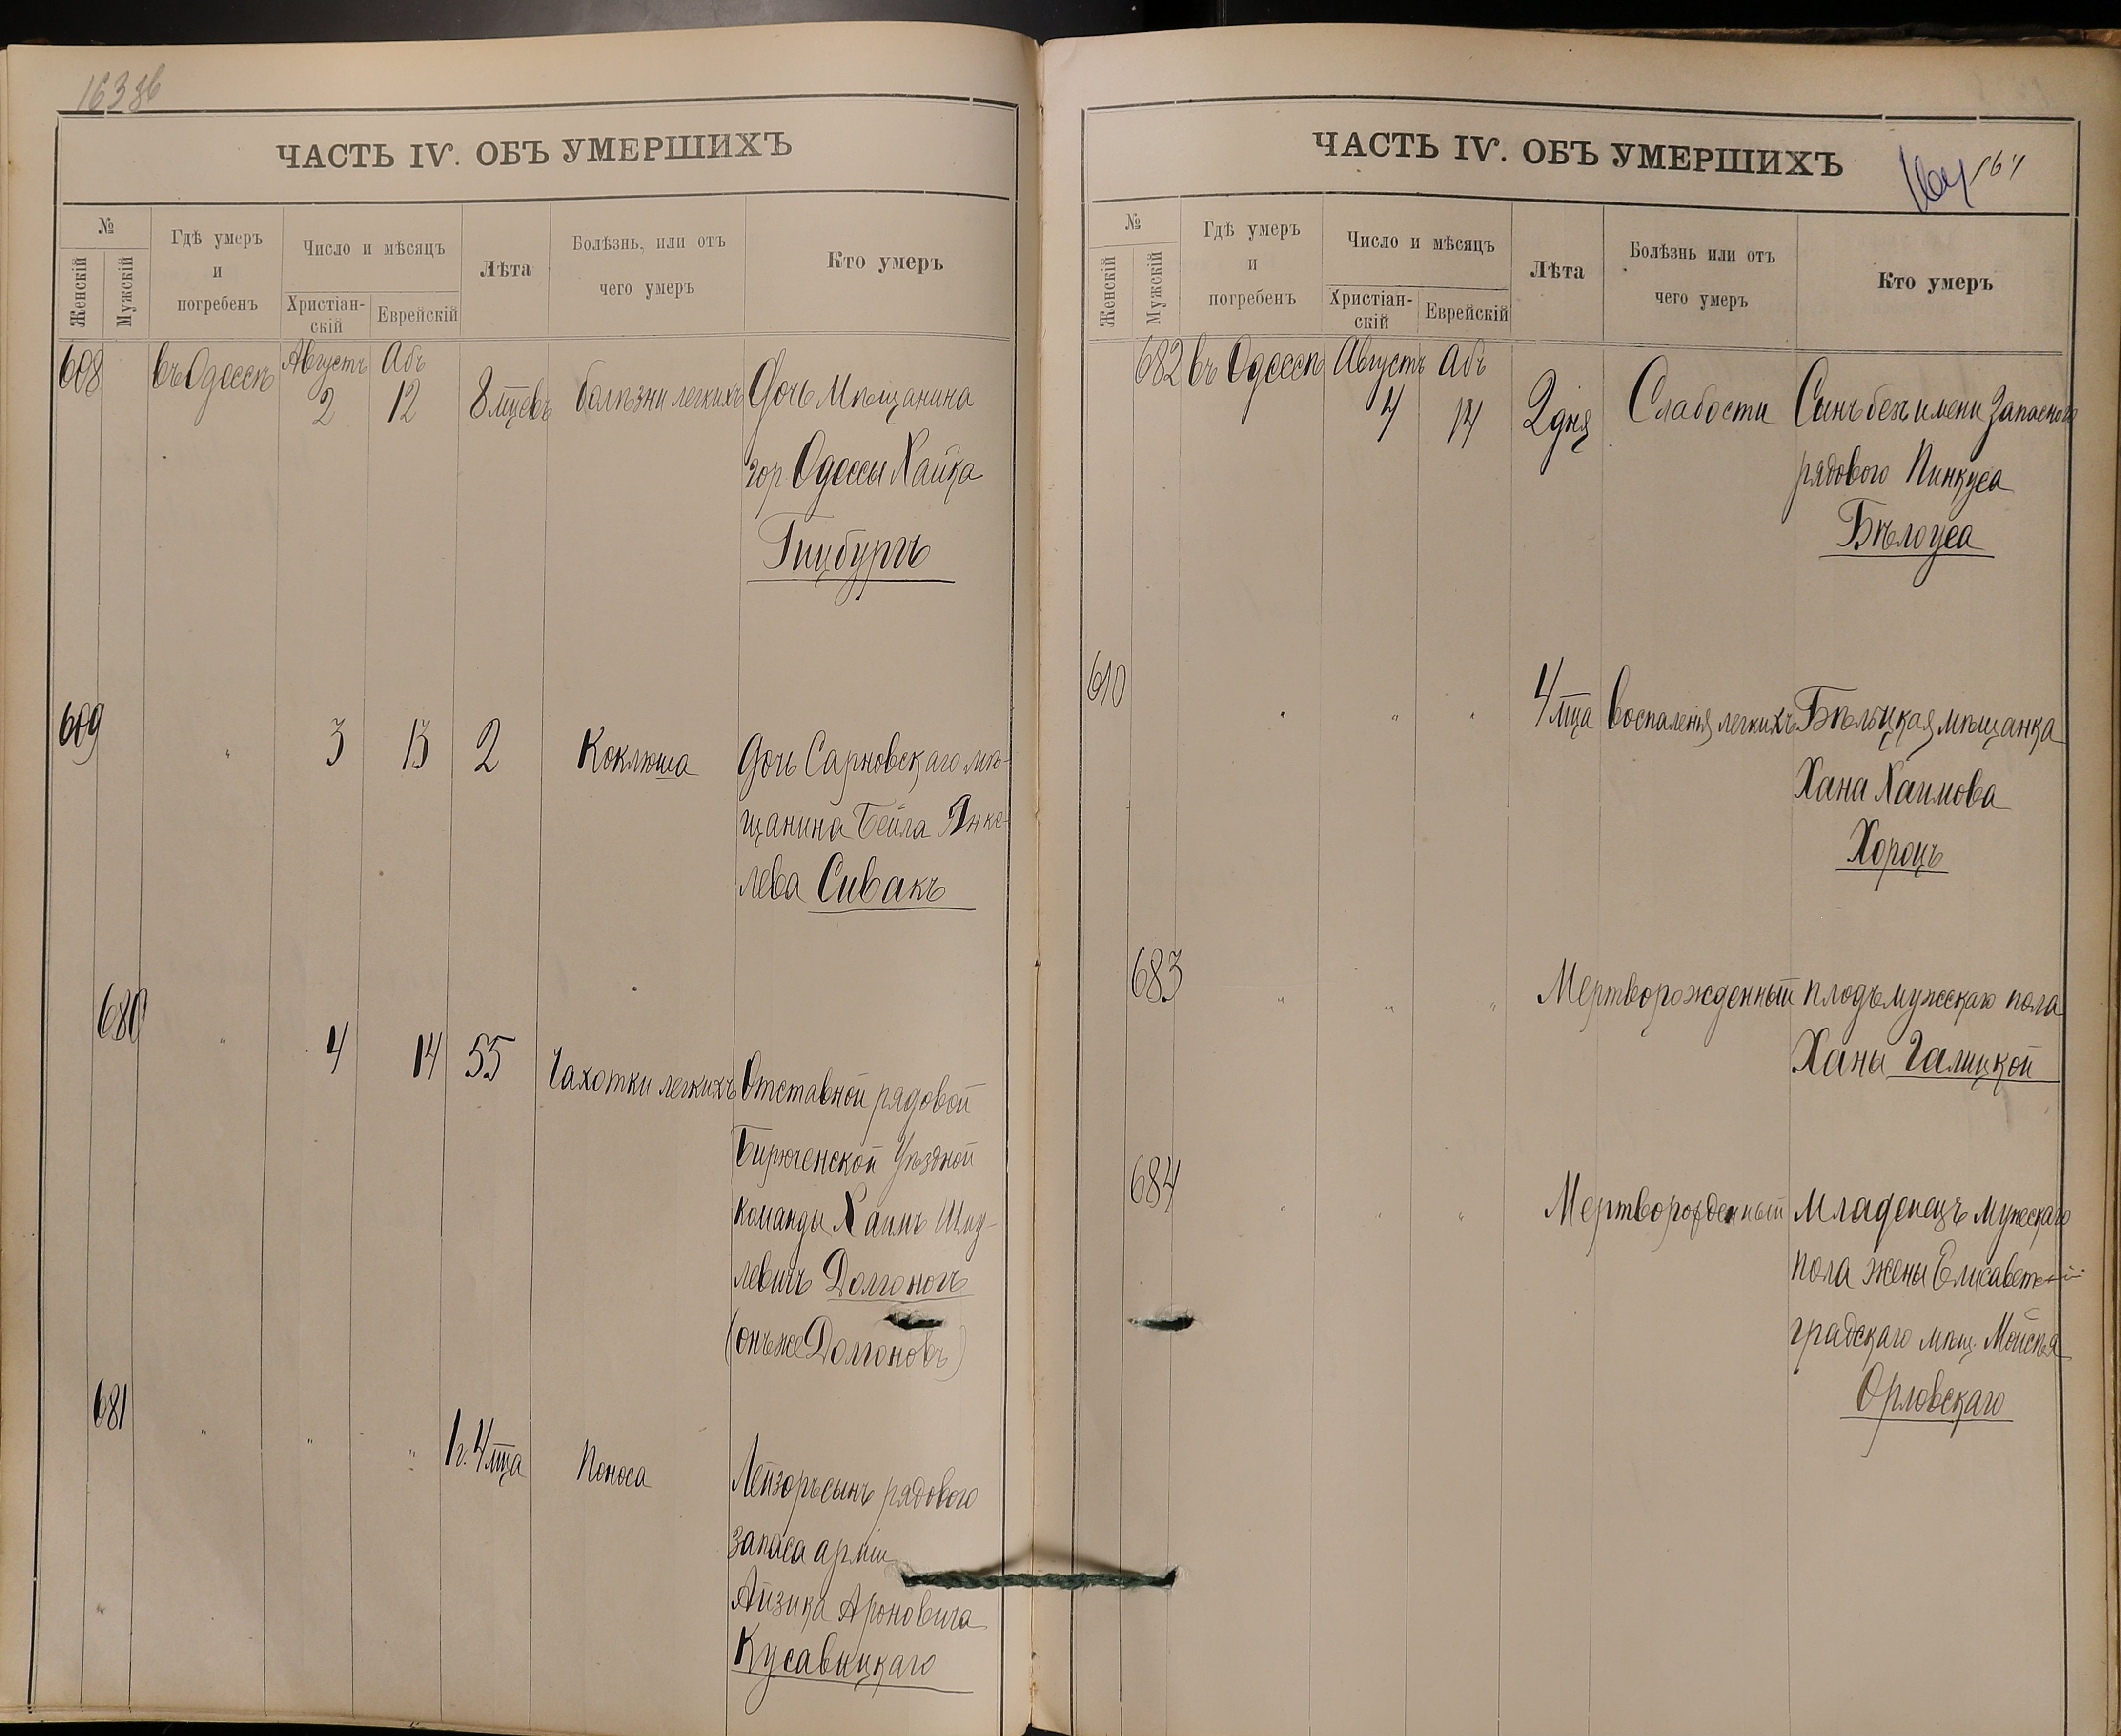 163 об
ЧАСТЬ IV. ОБЪ УМЕРШИХЪ
№
Женскій
Мужскій
Гдѣ умеръ
и
погребенъ
Число и мѣсяцъ
Христіан-
скій
Еврейскій
Лѣта
Болѣзнь, или отъ
чего умеръ
Кто умеръ
608 въ Одессѣ Августъ Абъ
2 12 8 мцевъ болѣзни легкихъ Дочь Мѣщанина
гор. Одессы Хайка
Гинцбургъ
609 " 3 13 2 Коклюша Дочь Сарновскаго мѣ-
щанина Бейла Янке-
лева Сивакъ
680 " 4 14 55 Чахотки легкихъ Отставной рядовой
Бирюченской Уѣздной
команды Хаимъ Шму-
левичъ Долгоногъ
(онъ же Долгоновъ)
681 " " " 1 г. 4 мца Поноса Лейзоръ сынъ рядового
запаса арміи
Айзика Ароновича
Кусавицкаго
ЧАСТЬ IV. ОБЪ УМЕРШИХЪ
164
№
Женскій
Мужскій
Гдѣ умеръ
и
погребенъ
Число и мѣсяцъ
Христіан-
скій
Еврейскій
Лѣта
Болѣзнь или отъ
чего умеръ
Кто умеръ
682 въ Одессѣ Августъ Абъ
4 14 2 дня Слабости Сынъ безъ имени Запаснаго
рядового Пинкуса
Бѣлоуса
610 " " " 4 мца Воспаленія легкихъ Бѣльцкая мѣщанка
Хана Хаимова
Хороцъ
683 " " " Мертворожденный плодъ мужскаго пола
Ханы Галицкой
684 " " " Мертворожденный Младенецъ мужескаго
пола жены Елисавет-
градскаго мѣщ. Мойсѣя
Орловскаго